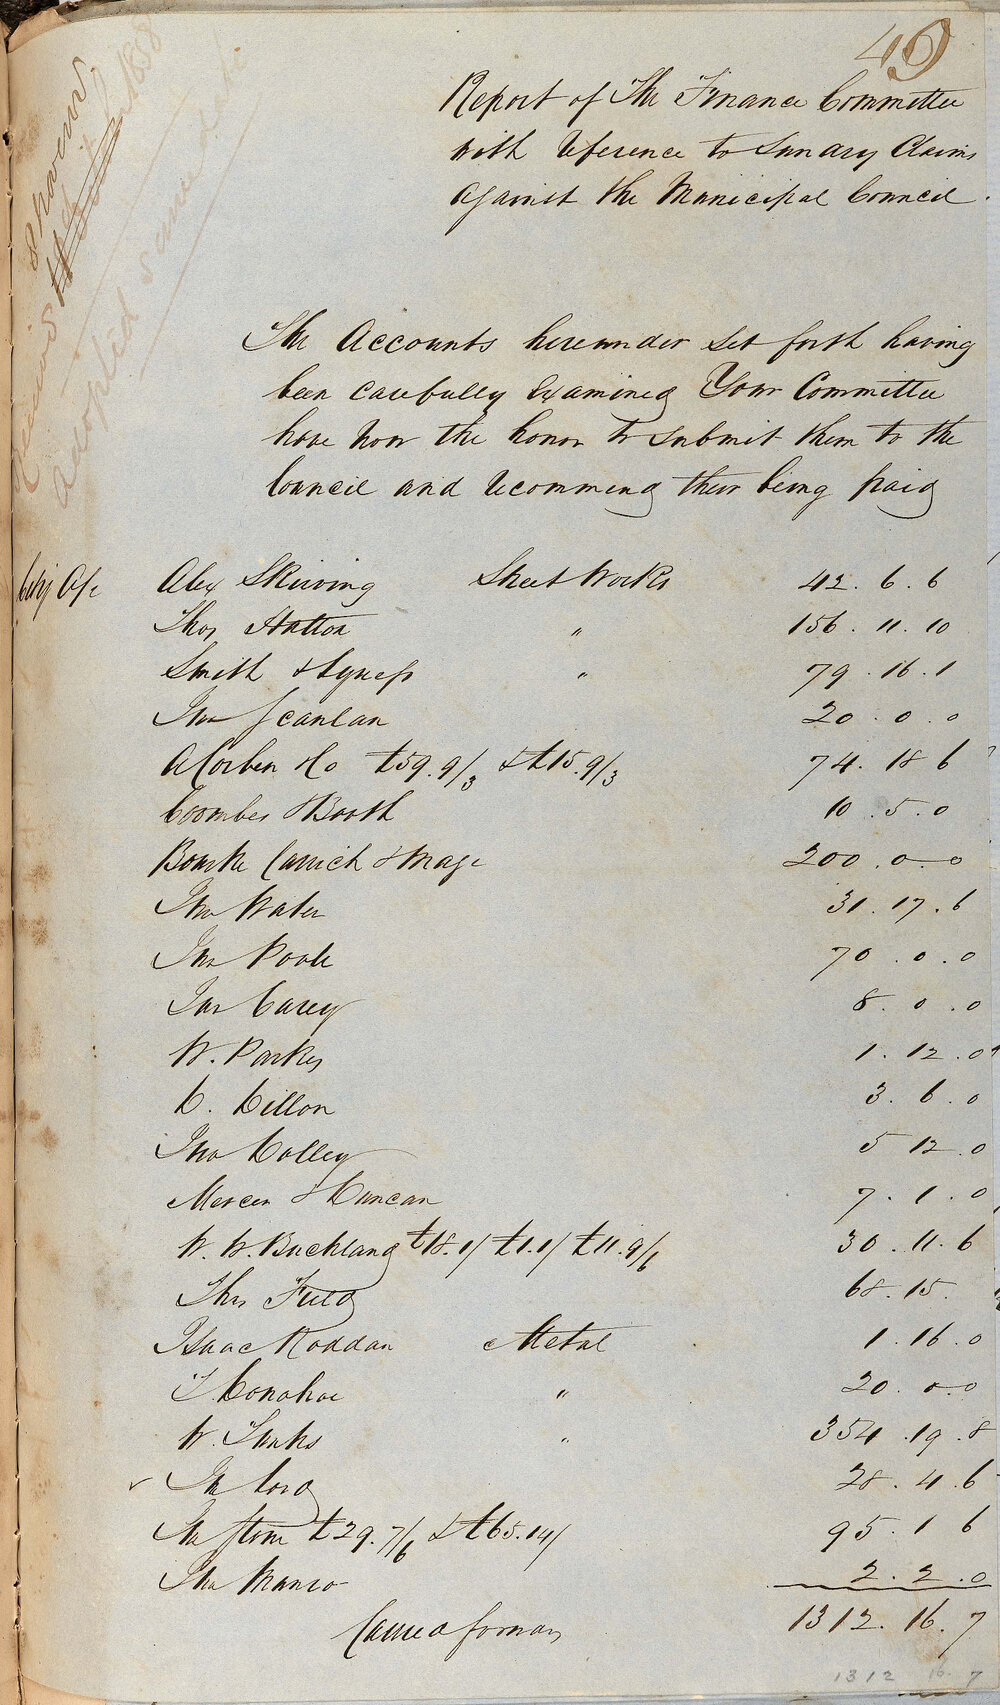 49
Report of The Finance Committee
with reference to Sundry Claims
against the Municipal Council.
Received
adopted same date
1858
The Accounts hereunder set forth having
been carefully Examined Your Committee
have now the honor to submit them to the
Council and recommend their being paid
City A/c Alex Skirving Street Works 42. 6. 6
Thos Hatton " 156. 11. 10
Smith & " 79. 16. 1
Jno Scanlan 20. 0. 0
A Corben & Co £59. 9/3 & £15. 9/3 74. 18 6
Coombes & Booth 10. 5. 0
Bourke Carrick & Mage 200. 0. 0
Jno Water 31. 17. 6
Jno Poole 70. 0. 0
Jas Carey 8. 0. 0
W. Parkes 1. 12. 0
D. Dillon 3. 6. 0
Jno Colley 5 12. 0
Mercer & Duncan 7. 1. 0
W. W. Buckland £18. 1/ £1. 1/ £11. 9/6 30. 11. 6
Thos Field 68. 15.
Isaac Roddan Metal 1. 16. 0
T. Donohoe " 20. 0. 0
W. " 354. 19. 8
Jno Lord 28. 4. 6
Jno Stone £29. 7/6 & £65. 14/ 95. 1 6
Jno 2. 2. 0
Carried forward 1312. 16. 7
1312 16. 7